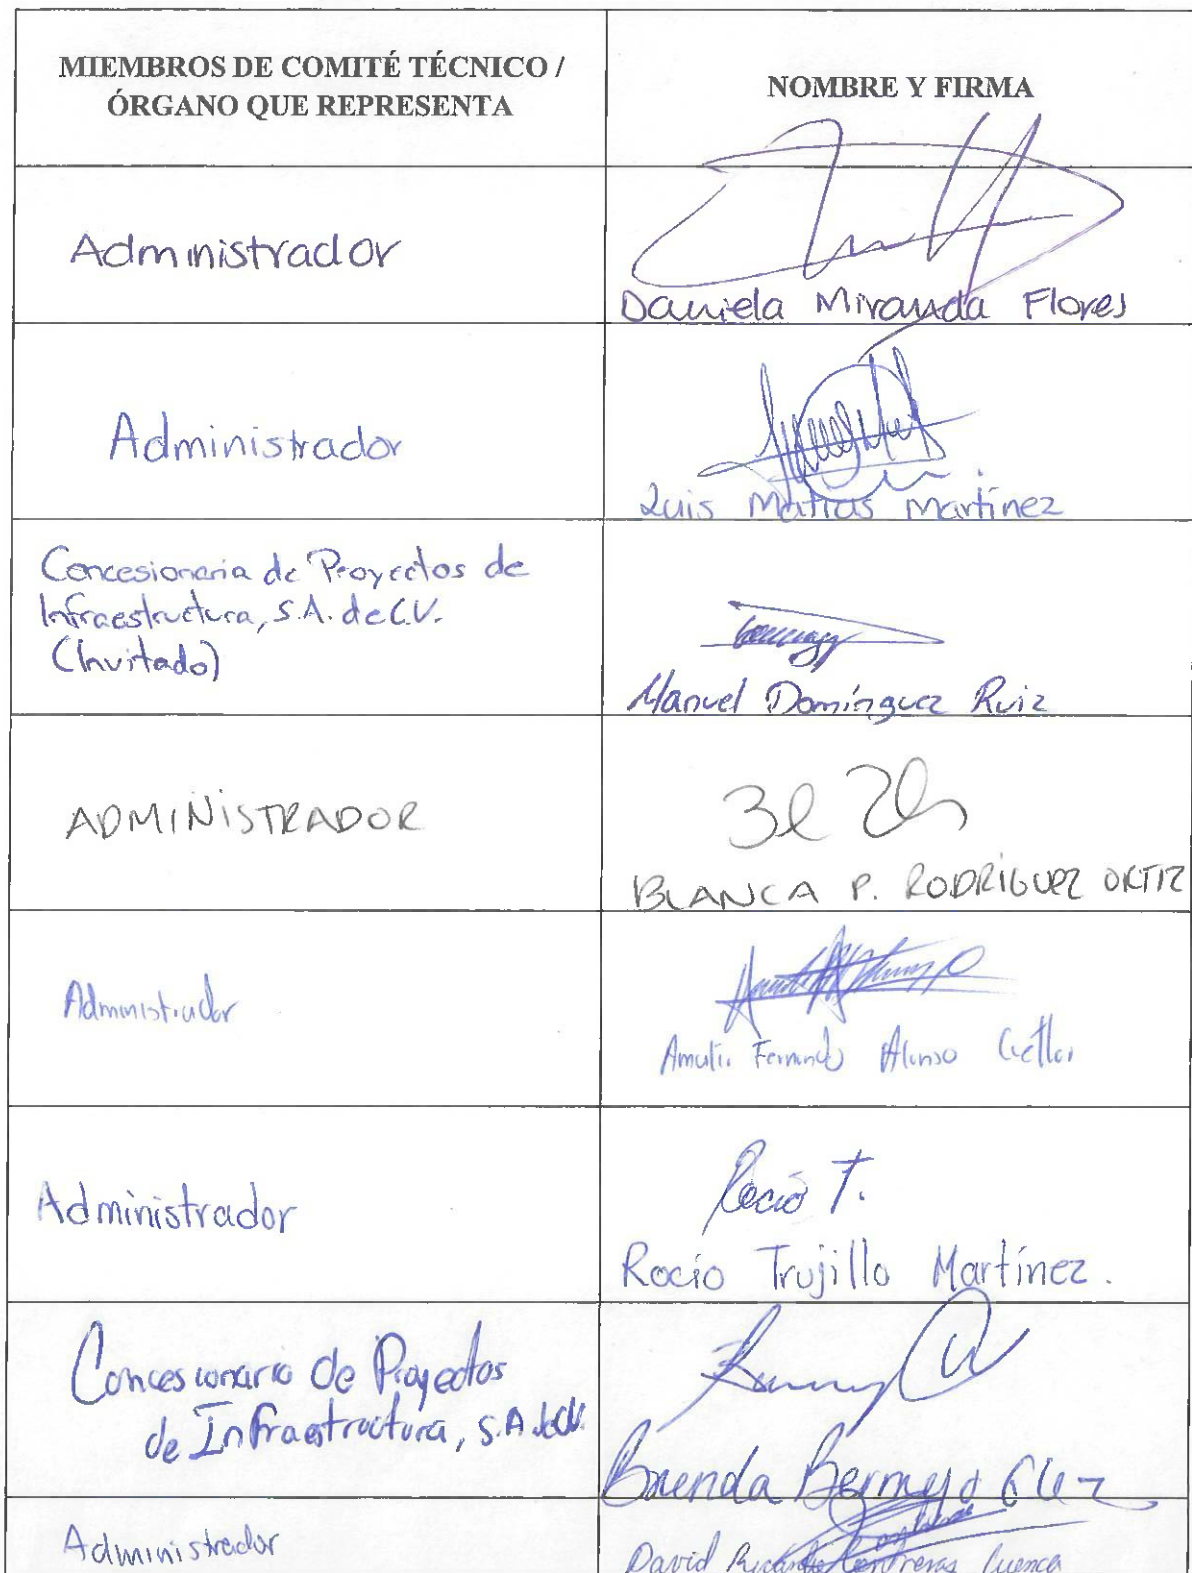 MIEMBROS DE COMITÉ TÉCNICO /
ÓRGANO QUE REPRESENTA
NOMBRE Y FIRMA
Administrador
Daniela Miranda Flores
Administrador
Luis Matias Martínez
Concesionaria de Proyectos de
Infraestructura, S.A. de C.V.
(Invitado)
Manuel Domínguez Ruiz
ADMINISTRADOR
BLANCA P. RODRÍGUEZ ORTIZ
Administrador
Fernando Alonso Cuellar
Administrador
Rocío T.
Rocío Trujillo Martínez.
Concesionaria de Proyectos
de Infraestructura, S.A. de C.V.
Brenda Bermejo
Administrador
David Ricardo Contreras Cuenca